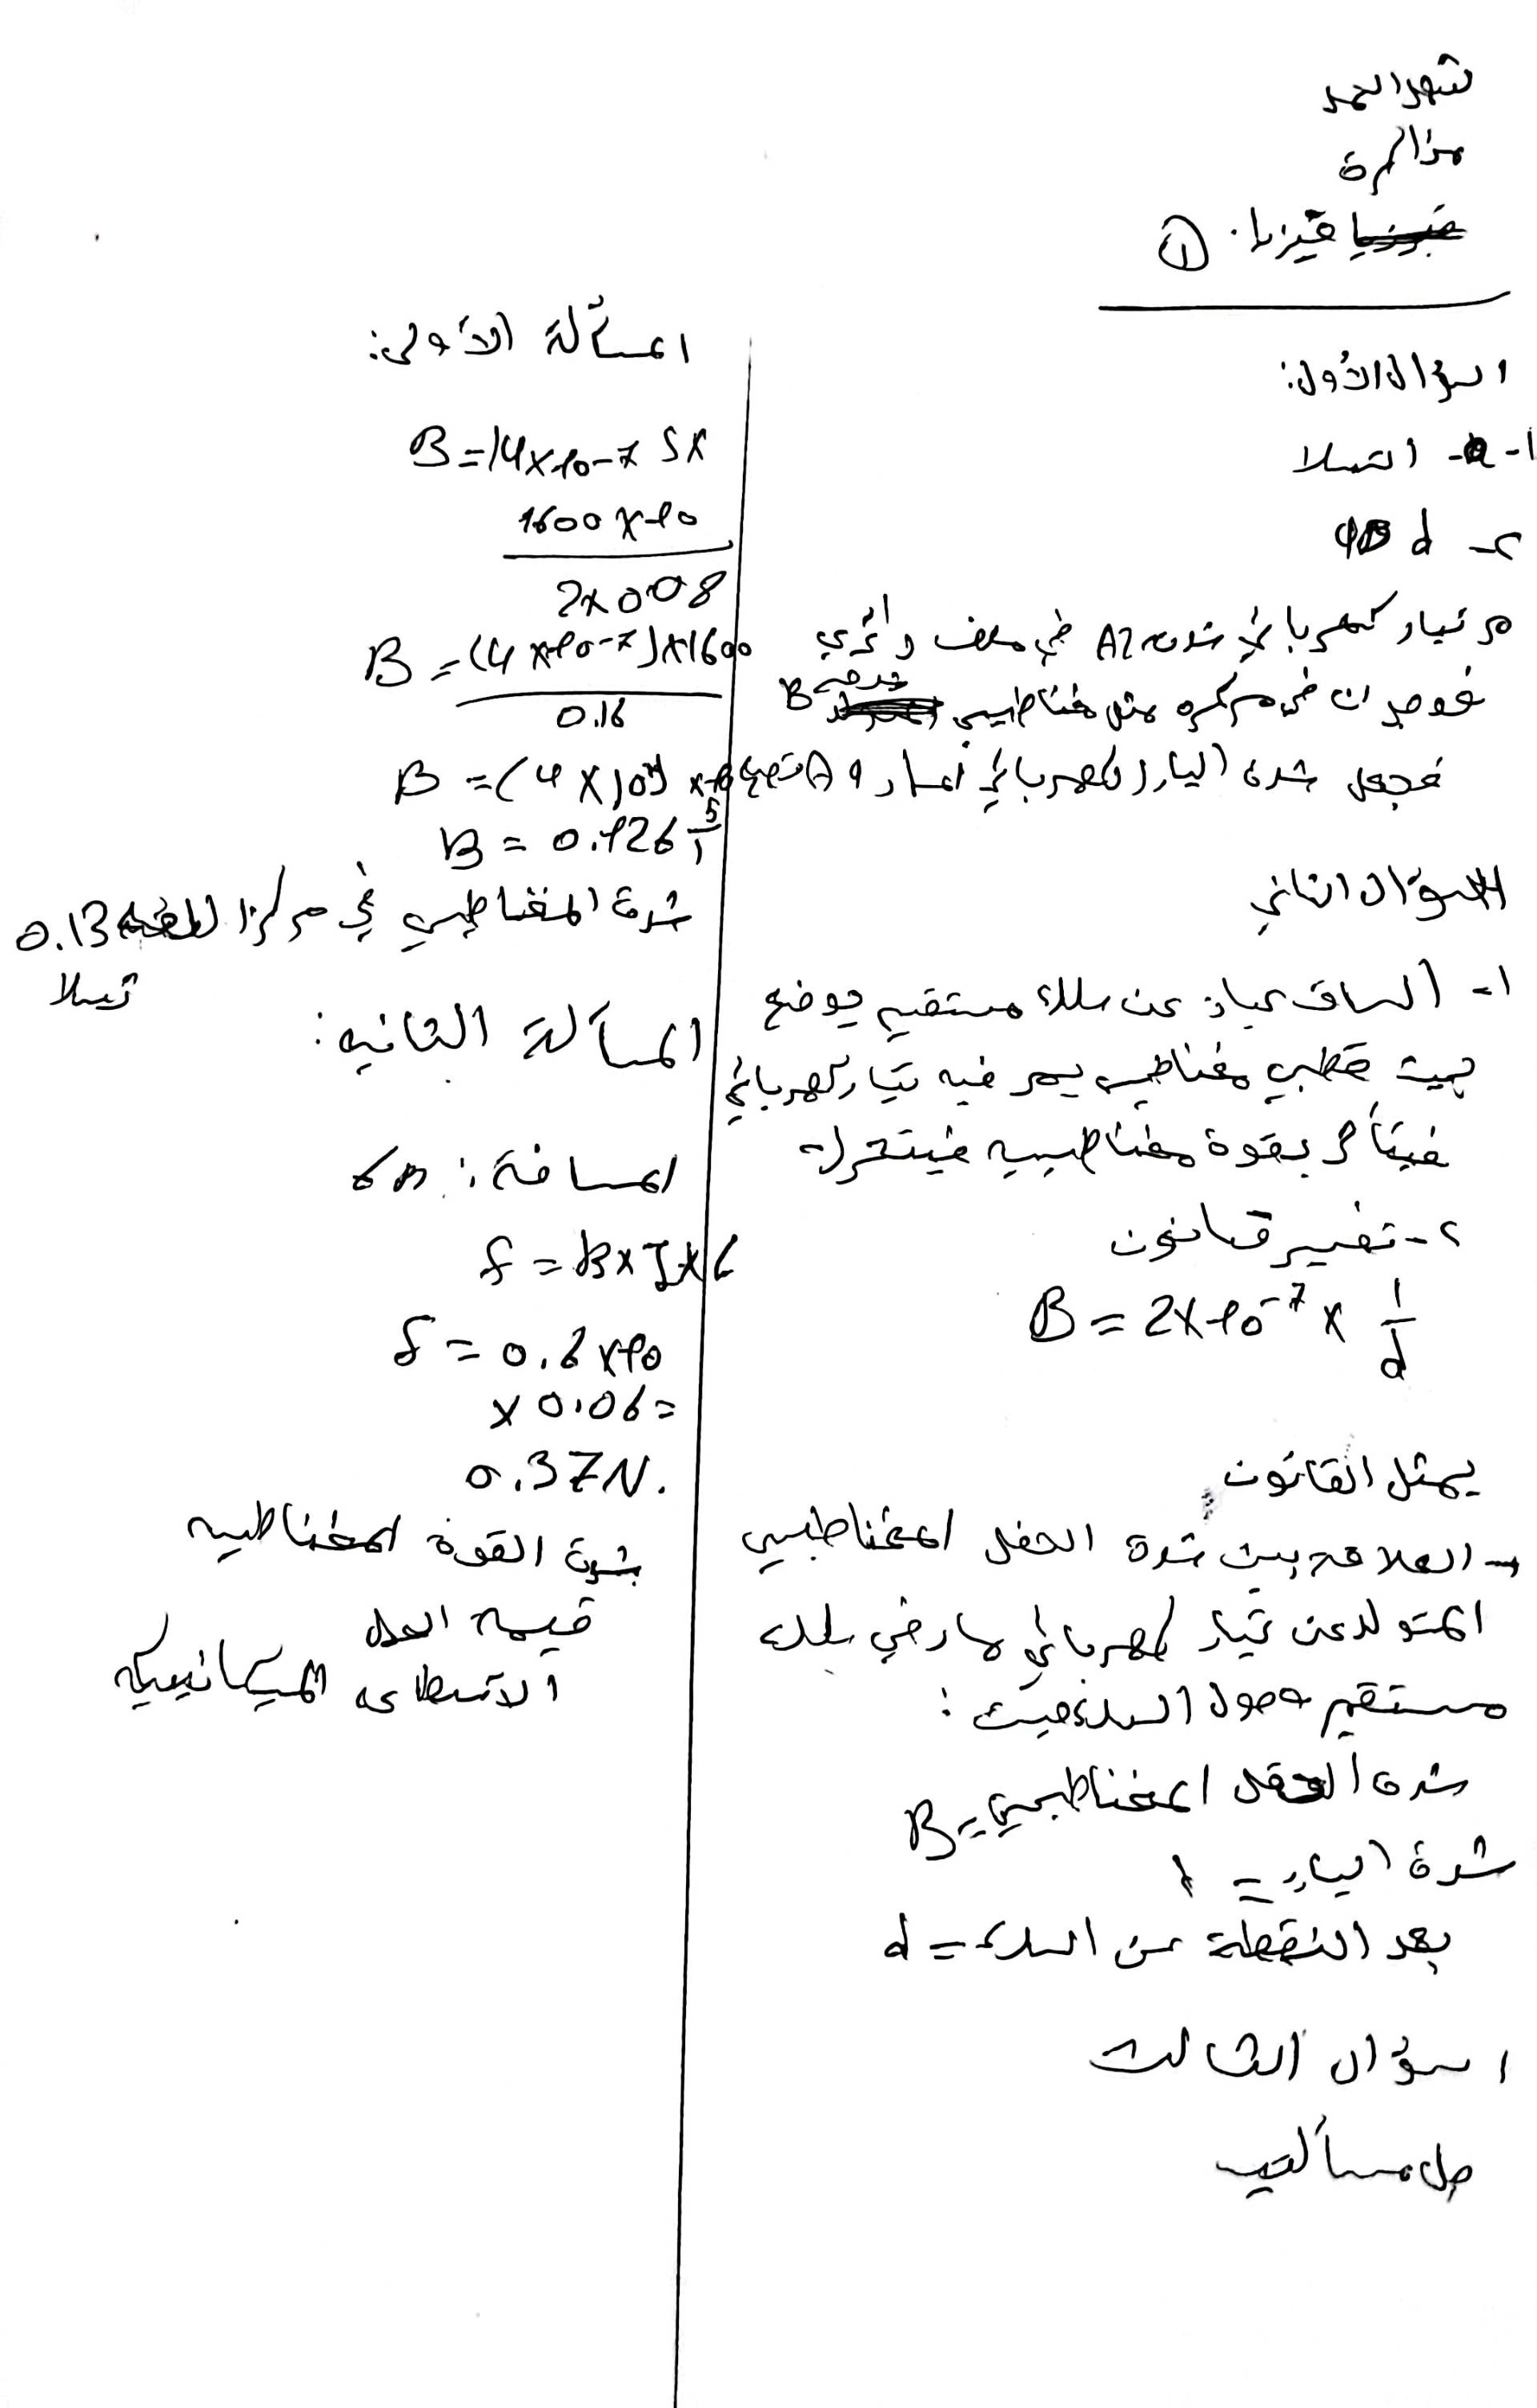 شهد الحمد
مذاكرة
فيزيا. ①
السؤال الأول:
1- a- التسلا
2- 4B d
مر تيار كهربائي شدته A2 في ملف دائري
فوجد ان في مركزه مغناطيسي شدته B
فجعل شدة التيار الكهربائي A
السؤال الثاني
1- الساق عبارة عن سلك مستقيم يوضع
بين قطبي مغناطيس يمر فيه تيار كهربائي
فيتأثر بقوة مغناطيسية فيتحرك
2- تفسير قانون
B = 2×10⁻⁷ × I/d
يمثل القانون
- العلاقة بين شدة الحقل المغناطيسي
المتولد عن تيار كهربائي مار في سلك
مستقيم وحول السلك حيث:
شدة الحقل المغناطيسي = B
شدة التيار = I
بعد النقطة عن السلك = d
السؤال الثالث
حل مسألتين
المسألة الأولى:
B = 14×10-7 5×
1600×10
2×008
B = (4×10-7)×1600
0.16
B = (4×10
B = 0.126
شدة المغناطيسي في مركز 0.13
تسلا
المسألة الثانية:
المسافة: 6m
f = B×I×L
f = 0.6×10
×0.06=
0.37N.
شدة القوة المغناطيسية
قيمة العمل
الاستطاعة الميكانيكية